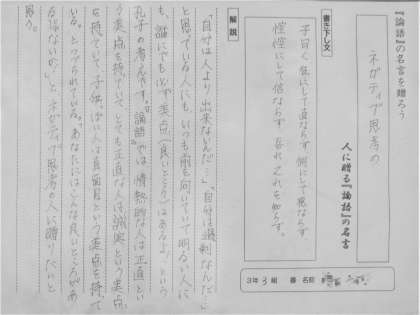 『論語』の名言を贈ろう
ネガティブ思考の
人に贈る『論語』の名言
3年3組 番 名前
書き下し文
子曰く狂にして直ならず、侗にして愿ならず、
悾悾にして信ならず、吾れこれを知らず。
解説
「自分は人より出来ないんだ…」「自分は過剰なんだ…」
と思でいる人にも、いつも前を向いていて明るい人に
も、誰にでも必ず美点(良いところ)はあるよ、という
孔子の考えです。『論語』では、情熱的な人は正直とい
う美点を持ていて、とても正直な人は誠実という美点
を持ていて、子供ぽい人は真面目という美点を持って
いる。とつづられている。あなたにはどんな良いところがあ
るか
思う。